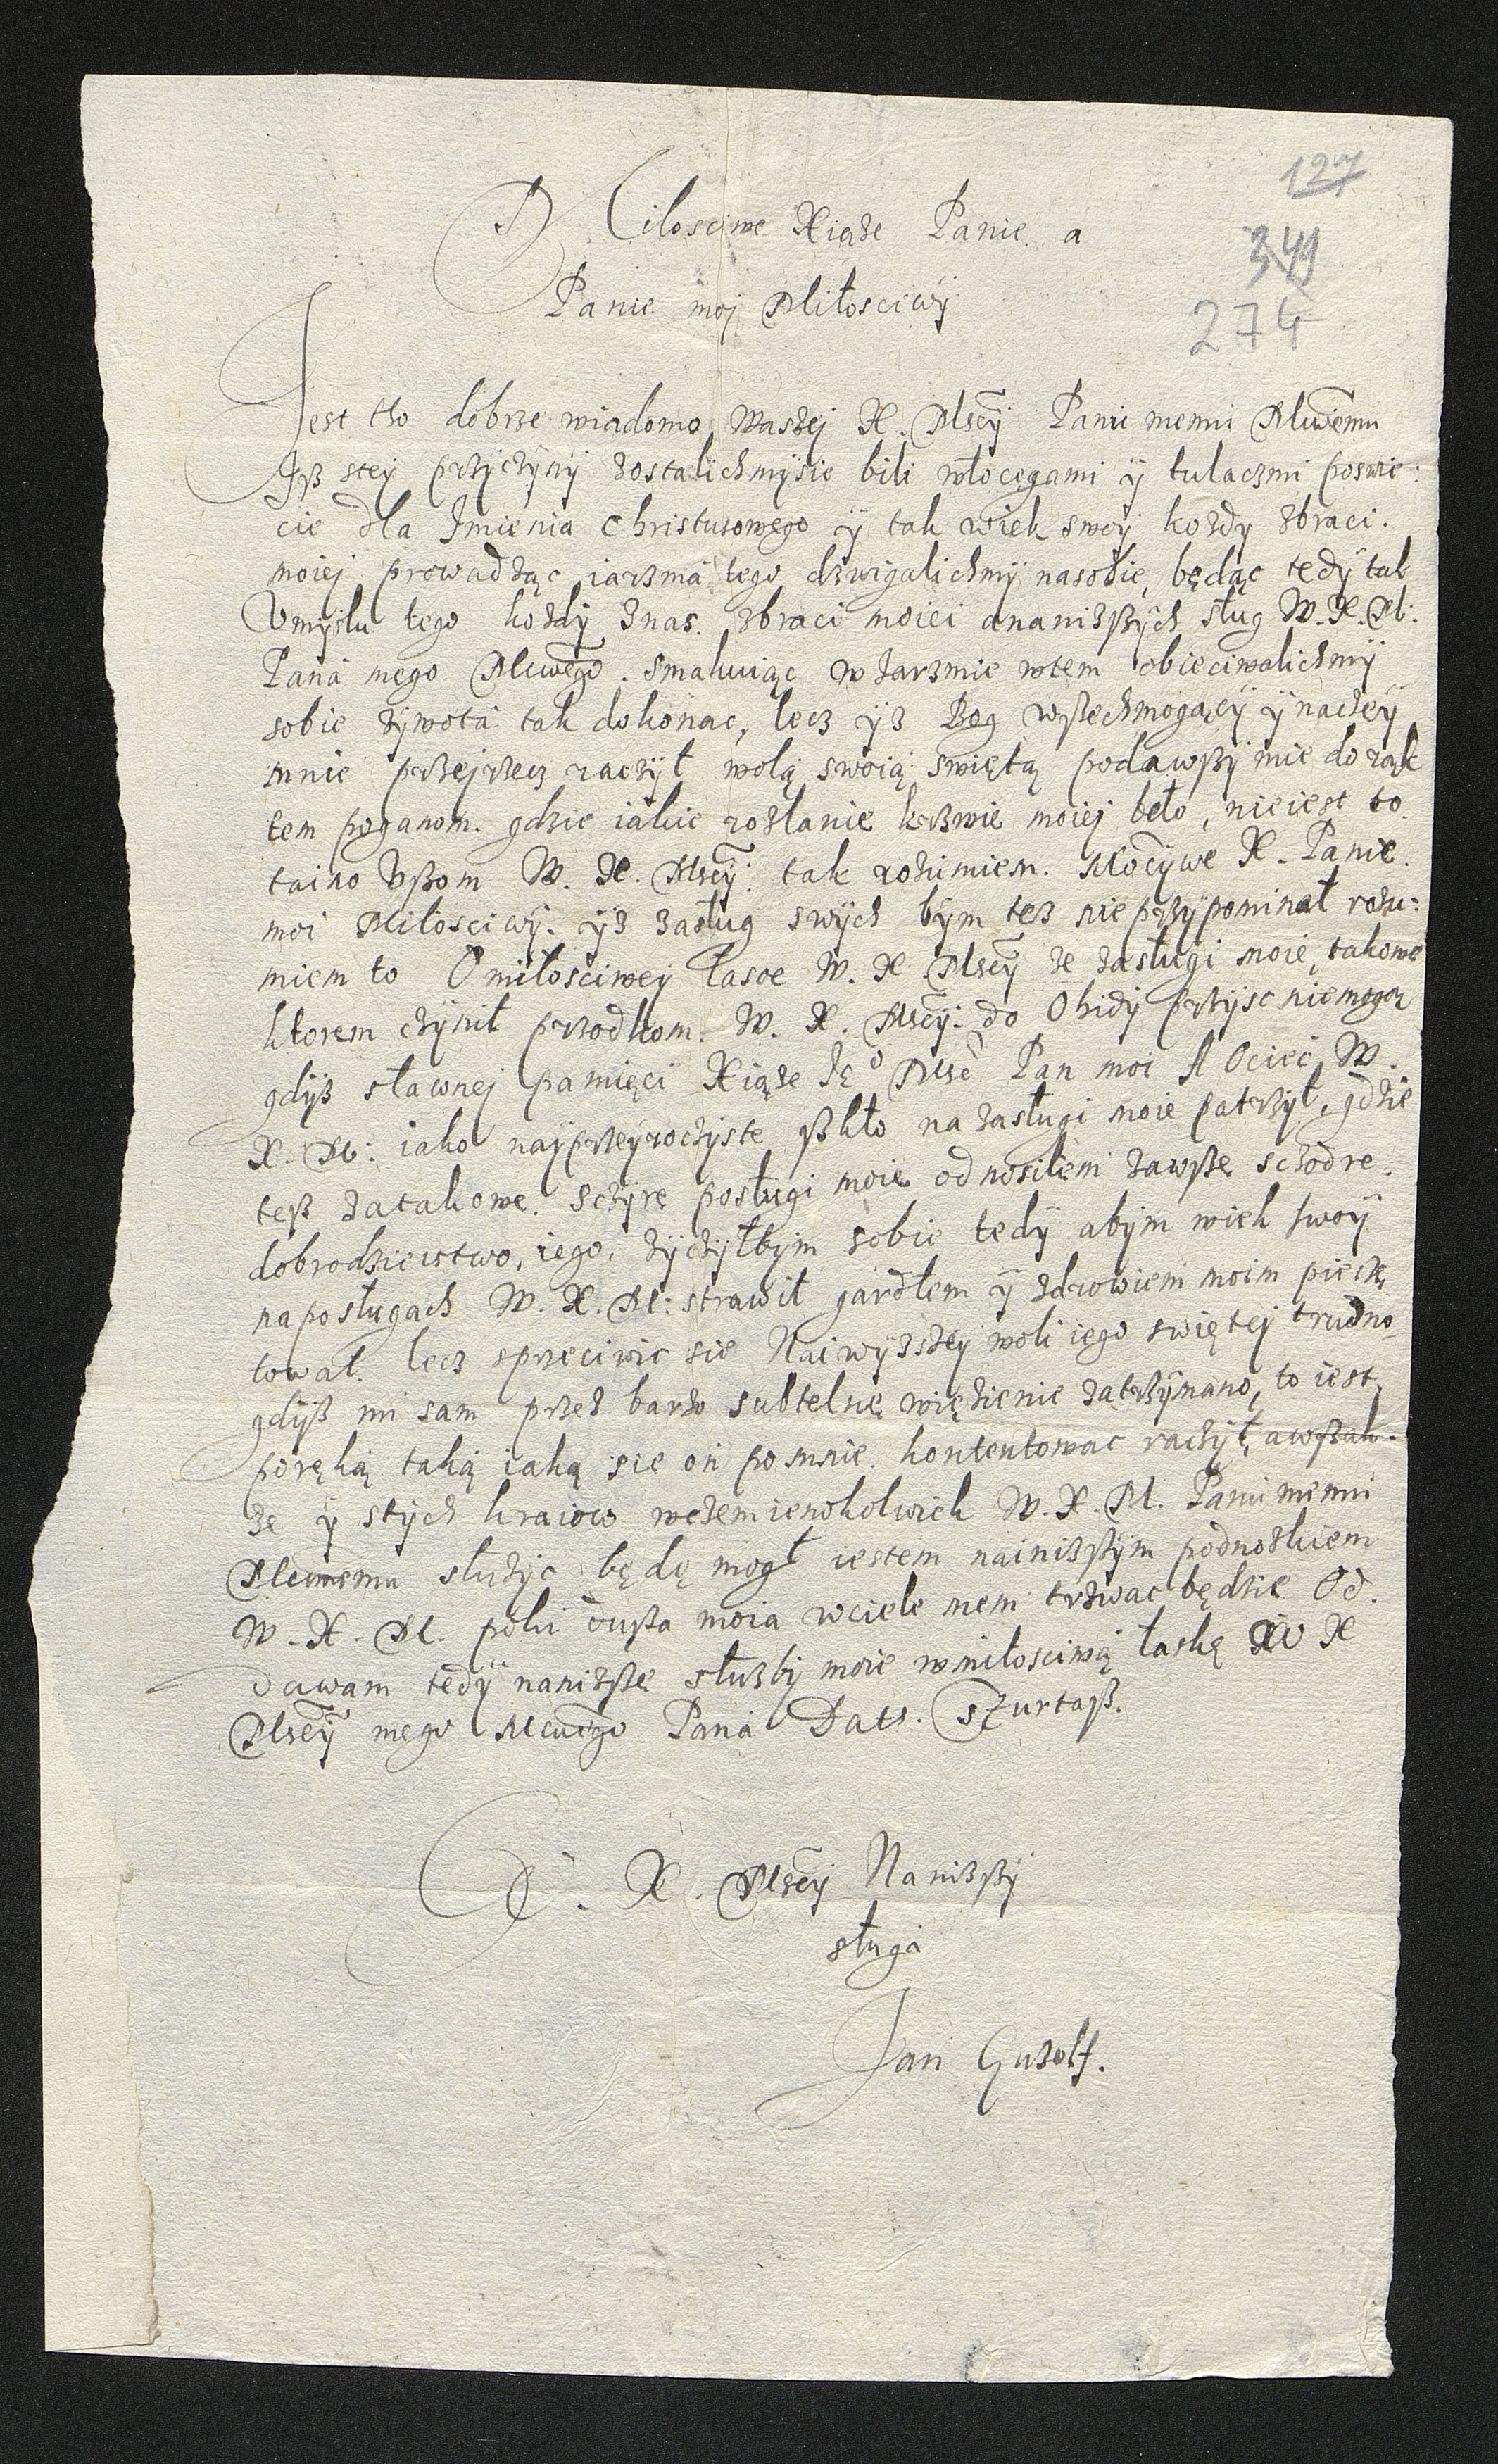 127
341
274
Miłosciwe Xiąze Panie a
Panie moj Miłosciwÿ
Jest tho dobrze wiadomo Waszej X. Mscÿ Panu memu Mlwemu
Jß stey prziczÿnÿ zostalichmÿsie bili włocęgami ÿ tulaczmi poswie:
cie dla Imienia Christusowego ÿ tak wiek swoÿ kozdy zbraci.
moiej prowadząc iarzma tego dzwigalichmÿ nasobie, będąc tedÿ tak
Vmÿslu tego kozdÿ znas. zbraci moiei ananizßÿch sług W. X. M:
Pana mego Mlcwego. Smakuiąc w Jarzmie wtem obiecuwalichmÿ
sobie zÿwota tak dokonac, lecz ÿz Bog wßechmogącÿ ÿnaczeÿ
mnie przejrzecz raczÿł wolą swoią swiętą podawßÿ mie do rąk
tem poganom. gdzie iakie rozlanie krzwie moiej beło, nieiest to
taino Vßom W. X. Mscÿ. tak rozumiem. Mocÿwe X. Panie.
moi Miłosciwÿ. ÿz zasług swÿch bÿm tez nie przÿpominał rozu:
miem to O miłosciweÿ łasce W. X Mscÿ ze zasługi moie, takowe
ktorem czÿnił przodkom. W. X. Mscÿ: do Ohidÿ przÿsc niemogą
gdÿß sławnej pamięci Xiąze Je° Msc Pan moi A Ociec W.
X. M: iako naÿprzeÿroczÿste ßkło na zasługi moie patrzÿł, gdzie
teß zatakowe. sczÿre posługi moie odnosiłem zawßę sczodre.
dobrodzieistwo, iego, zÿczÿłbÿm sobie tedÿ abÿm wiek swoÿ
naposługach W. X. M: strawił gardłem ÿ zdrowiem moim pieczę
towal. lecz sprzeciwic sie Naiwÿzszeÿ woli iego swiętej trudno
gdÿß mi sam przez barzo subtelne więzienie zatrzÿmano, to iest
poręką taką iaką sie on po mnie. kontentowac raczÿł, awßak:
ze ÿ stÿch kraiow wczemienokolwiek W. X. M. Panu memu
Mlcwemu słuzÿc będę mogł iestem nainizßÿm podnozkiem
W. X. M. poki dußa moia wciele mem trzwac będzie Od.
dawam tedÿ nanizßę słuzbÿ moie wmiłosciwą łaskę W X
Mscÿ mego Mcwego Pana Dats. Szurtaß.
W. X. Mscÿ Nanizßÿ
sługa
Jan Guzolf.